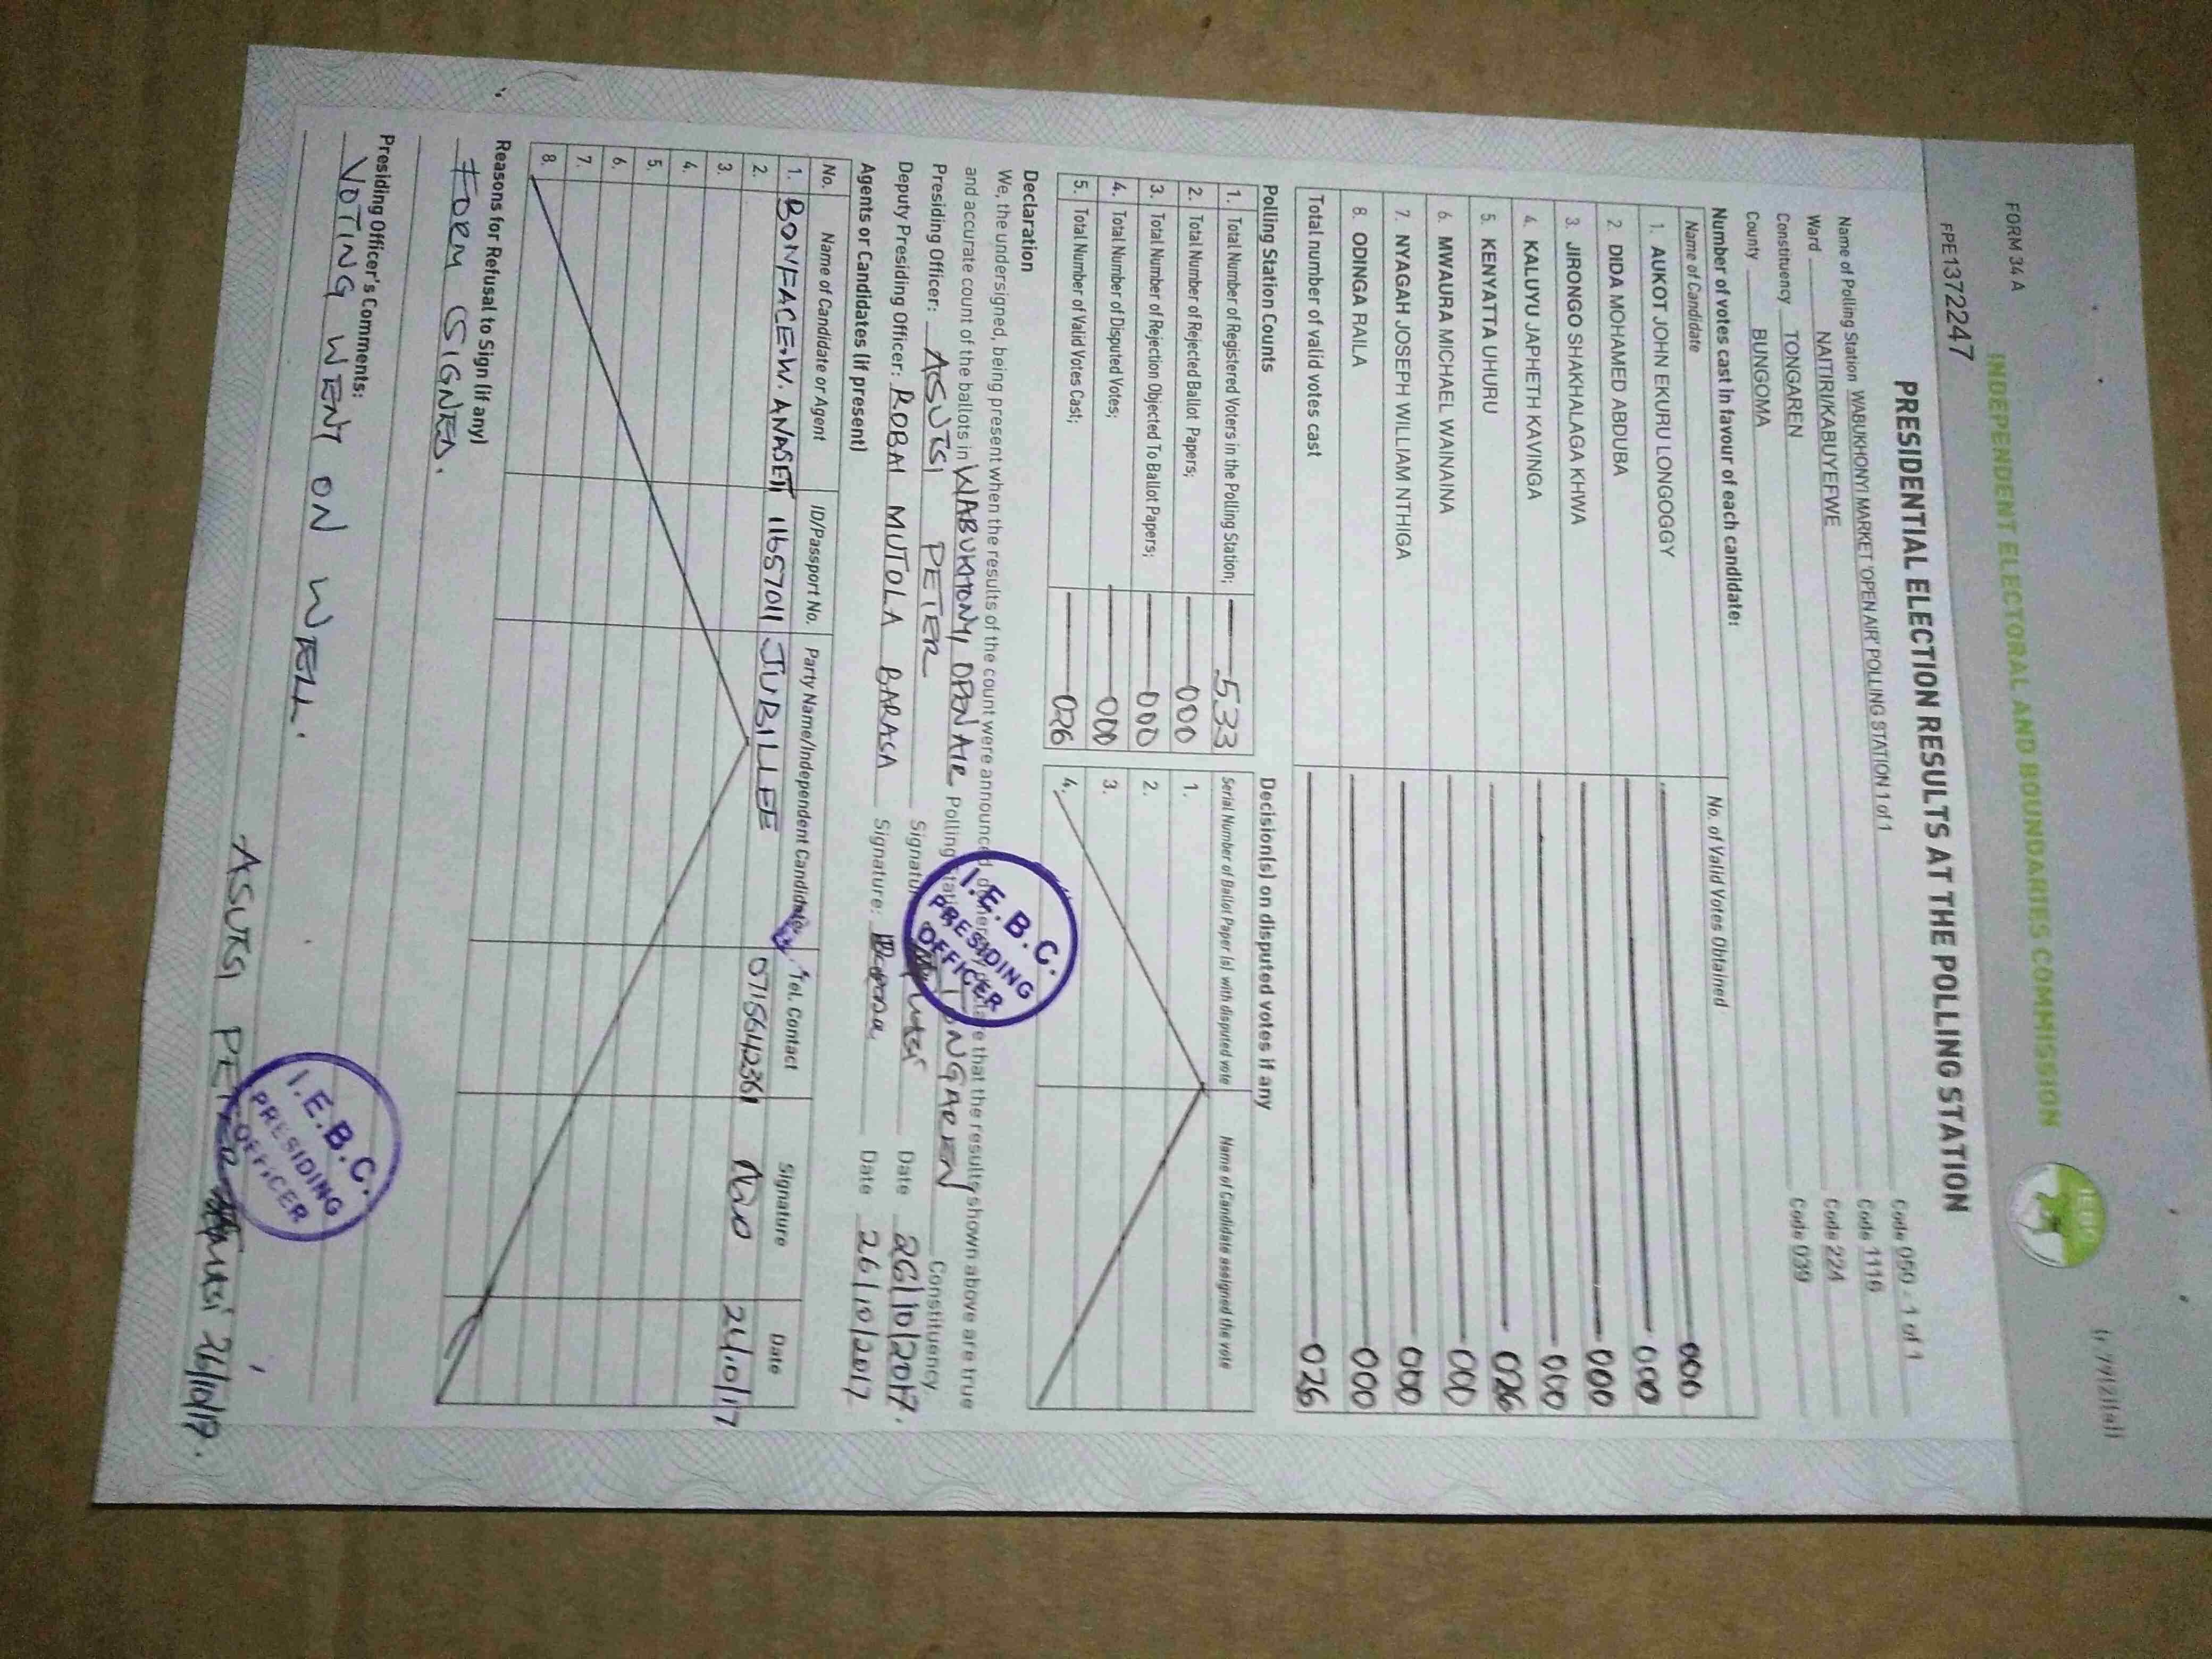 FORM 34 A
INDEPENDENT ELECTORAL AND BOUNDARIES COMMISSION
IEBC
FPE1372247
PRESIDENTIAL ELECTION RESULTS AT THE POLLING STATION
Name of Polling Station WABUKHONYI MARKET 'OPEN AIR' POLLING STATION 1 of 1 Code 050 - 1 of 1
Ward NAITIRI/KABUYEFWE Code 1116
Constituency TONGAREN Code 224
County BUNGOMA Code 039
Number of votes cast in favour of each candidate:
Name of Candidate No. of Valid Votes Obtained
1. AUKOT JOHN EKURU LONGOGGY 000
2. DIDA MOHAMED ABDUBA 000
3. JIRONGO SHAKHALAGA KHWA 000
4. KALUYU JAPHETH KAVINGA 000
5. KENYATTA UHURU 026
6. MWAURA MICHAEL WAINAINA 000
7. NYAGAH JOSEPH WILLIAM NTHIGA 000
8. ODINGA RAILA 000
Total number of valid votes cast 026
Polling Station Counts
1. Total Number of Registered Voters in the Polling Station; 533
2. Total Number of Rejected Ballot Papers; 000
3. Total Number of Rejection Objected To Ballot Papers; 000
4. Total Number of Disputed Votes; 000
5. Total Number of Valid Votes Cast; 026
Decision(s) on disputed votes if any
Serial Number of Ballot Paper (s) with disputed vote Name of Candidate assigned the vote
1.
2.
3.
4.
Declaration
We, the undersigned, being present when the results of the count were announced, do hereby declare that the results shown above are true
and accurate count of the ballots in WABUKHONYI OPEN AIR Polling Station TONGAREN Constituency
Presiding Officer: ASUTSI PETER Signature Date 26/10/2017.
Deputy Presiding Officer: ROBAI MUTOLA BARASA Signature: Date 26/10/2017
I.E.B.C.
PRESIDING
OFFICER
Agents or Candidates (if present)
No. Name of Candidate or Agent ID/Passport No. Party Name/Independent Candidate Tel. Contact Signature Date
1. BONFACE W. ANASETI 11657011 JUBILLEE 0715642361 26/10/17
2.
3.
4.
5.
6.
7.
8.
Reasons for Refusal to Sign (if any)
FORM SIGNED.
Presiding Officer's Comments:
VOTING WENT ON WELL.
ASUTSI PETER 26/10/17.
I.E.B.C.
PRESIDING
OFFICER